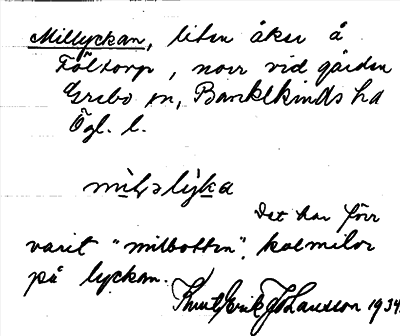 Millyckan, liten åker å
Fältorp, norr vid gården
Grebo sn, Bankekinds hd
Ögl. l.
Det har förr
varit "milbotten", kolmilor
på lyckan.
Knut Erik Johansson 1934.